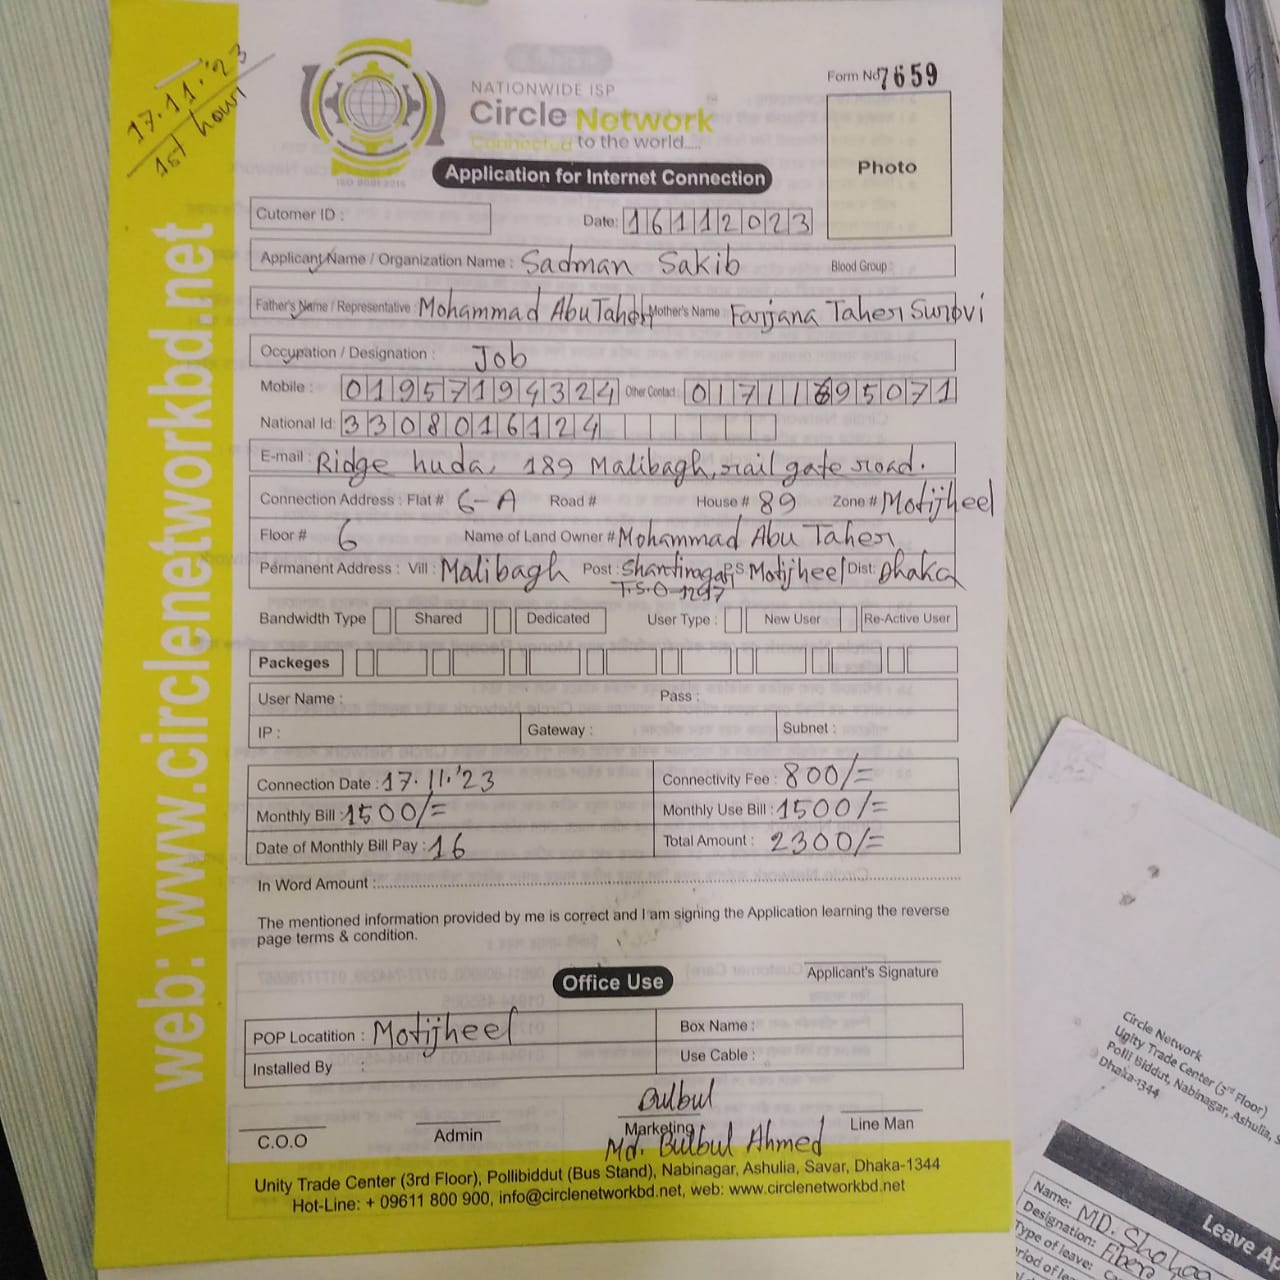 17.11.'23
1st hour
web: www.circlenetworkbd.net
NATIONWIDE ISP
Circle Network
Connected to the world.....
ISO 9001:2015
Form No 7659
Photo
Application for Internet Connection
Cutomer ID :
Date: 16112023
Applicant Name / Organization Name : Sadman Sakib Blood Group :
Father's Name / Representative : Mohammad Abu Taher Mother's Name : Farjana Taher Surovi
Occupation / Designation : Job
Mobile : 01957194324 Other Contact : 01711695071
National Id: 3308016124
E-mail : Ridge huda, 189 Malibagh, rail gate road.
Connection Address : Flat # 6-A Road # House # 89 Zone # Motijheel
Floor # 6 Name of Land Owner # Mohammad Abu Taher
Permanent Address : Vill : Malibagh Post : Shantinagar P.S Motijheel Dist: Dhaka
T.S.O-1217
Bandwidth Type Shared Dedicated User Type : New User Re-Active User
Packeges
User Name : Pass :
IP : Gateway : Subnet :
Connection Date : 17.11.'23 Connectivity Fee : 800/=
Monthly Bill : 1500/= Monthly Use Bill : 1500/=
Date of Monthly Bill Pay : 16 Total Amount : 2300/=
In Word Amount :
The mentioned information provided by me is correct and I am signing the Application learning the reverse
page terms & condition.
Applicant's Signature
Office Use
POP Locatition : Motijheel Box Name :
Installed By : Use Cable :
Bulbul
C.O.O Admin Marketing Line Man
Md. Bulbul Ahmed
Unity Trade Center (3rd Floor), Pollibiddut (Bus Stand), Nabinagar, Ashulia, Savar, Dhaka-1344
Hot-Line: + 09611 800 900, info@circlenetworkbd.net, web: www.circlenetworkbd.net
Circle Network
Unity Trade Center (3rd Floor)
Polli Biddut, Nabinagar, Ashulia, S
Dhaka-1344
Leave Ap
Name: MD. Shohag
Designation: Fiber
Type of leave: